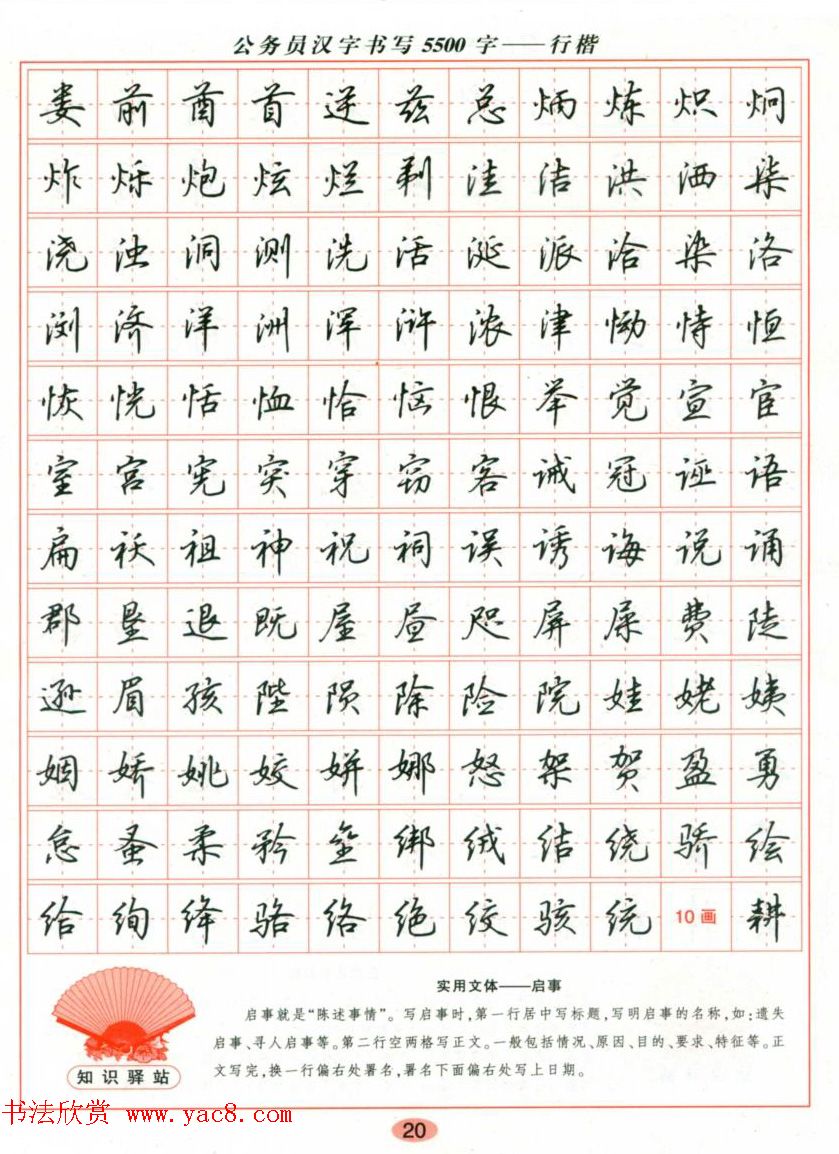 公务员汉字书写5500字——行楷
娄前酋首逆兹总炳炼炽炯
炸烁炮炫烂剃洼洁洪洒柒
浇浊洞测洗活涎派洽染洛
浏济洋洲浑浒浓津恸恃恒
恢恍恬恤恰恼恨举觉宣宦
室宫宪突穿窃客诫冠诬语
扁袄祖神祝祠误诱诲说诵
郡垦退既屋昼咫屏屎费陡
逊眉孩陛陨除险院娃姥姨
姻娇姚姣姘娜怒架贺盈勇
怠蚤柔矜垒绑绒结绕骄绘
给绚绛骆络绝绞骇统10画耕
实用文体——启事
启事就是“陈述事情”。写启事时,第一行居中写标题,写明启事的名称,如:遗失
启事、寻人启事等。第二行空两格写正文。一般包括情况、原因、目的、要求、特征等。正
文写完,换一行偏右处署名,署名下面偏右处写上日期。
知识驿站
书法欣赏 www.yac8.com
20